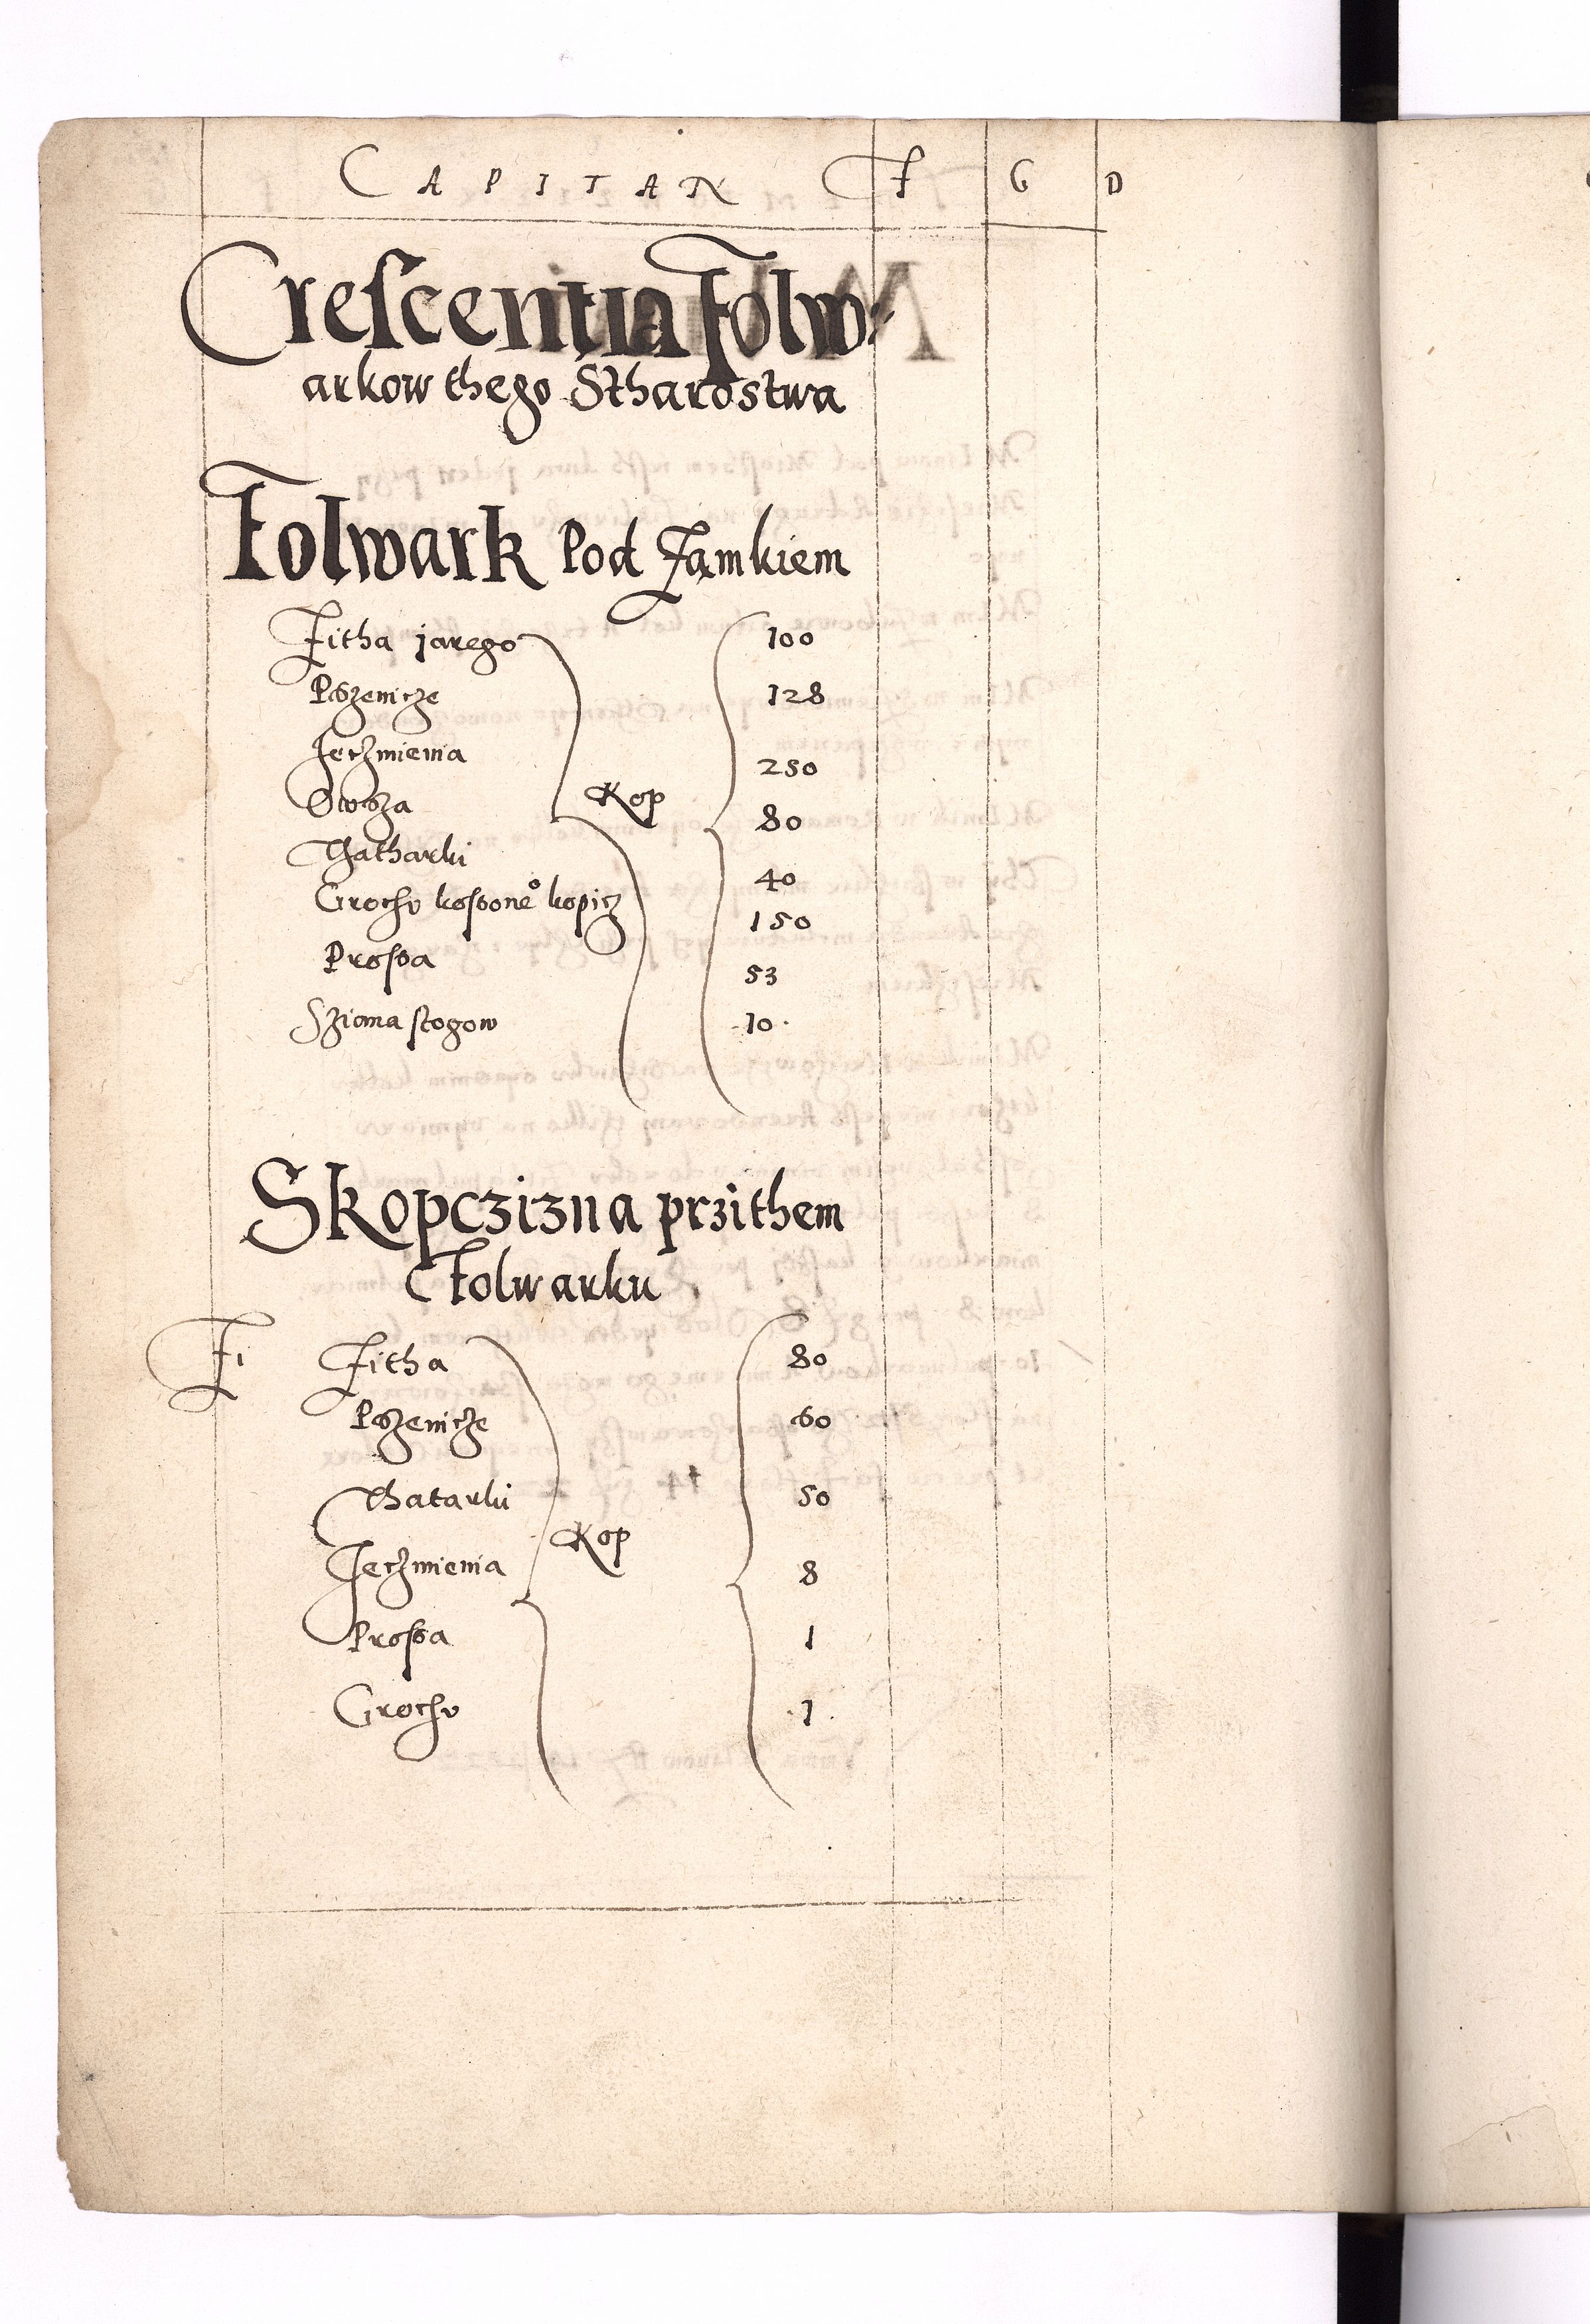 CAPITAN F G D
Crescentia Folw:
arkow thego Stharostwa
Folwark Pod Zamkiem
Zitha jarego 100
Pszenicze 128
Jeczmienia 250
Owsza Kop 80
Thatharki 40
Grochv koszoneo kopicz 150
Prossa 53
Sziana stogow 10
Skopczizna przithem
Folwarku
Zi Zitha 80
Pszenicze 60
Thatarki 50
Kop
Jeczmienia 8
Prossa 1
Grochv 1